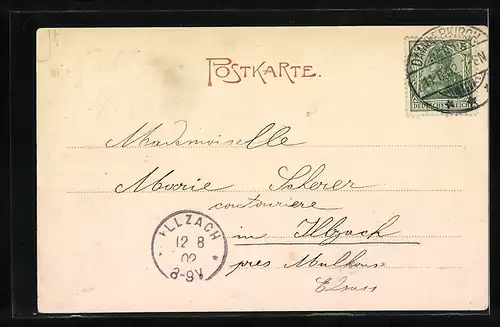 POSTKARTE.
DEUTSCHES REICH
Mademoiselle
Marie Scherer
couturiere
in Illzach
près Mulhouse
Elsass
ILLZACH
12 8
02
8-9V